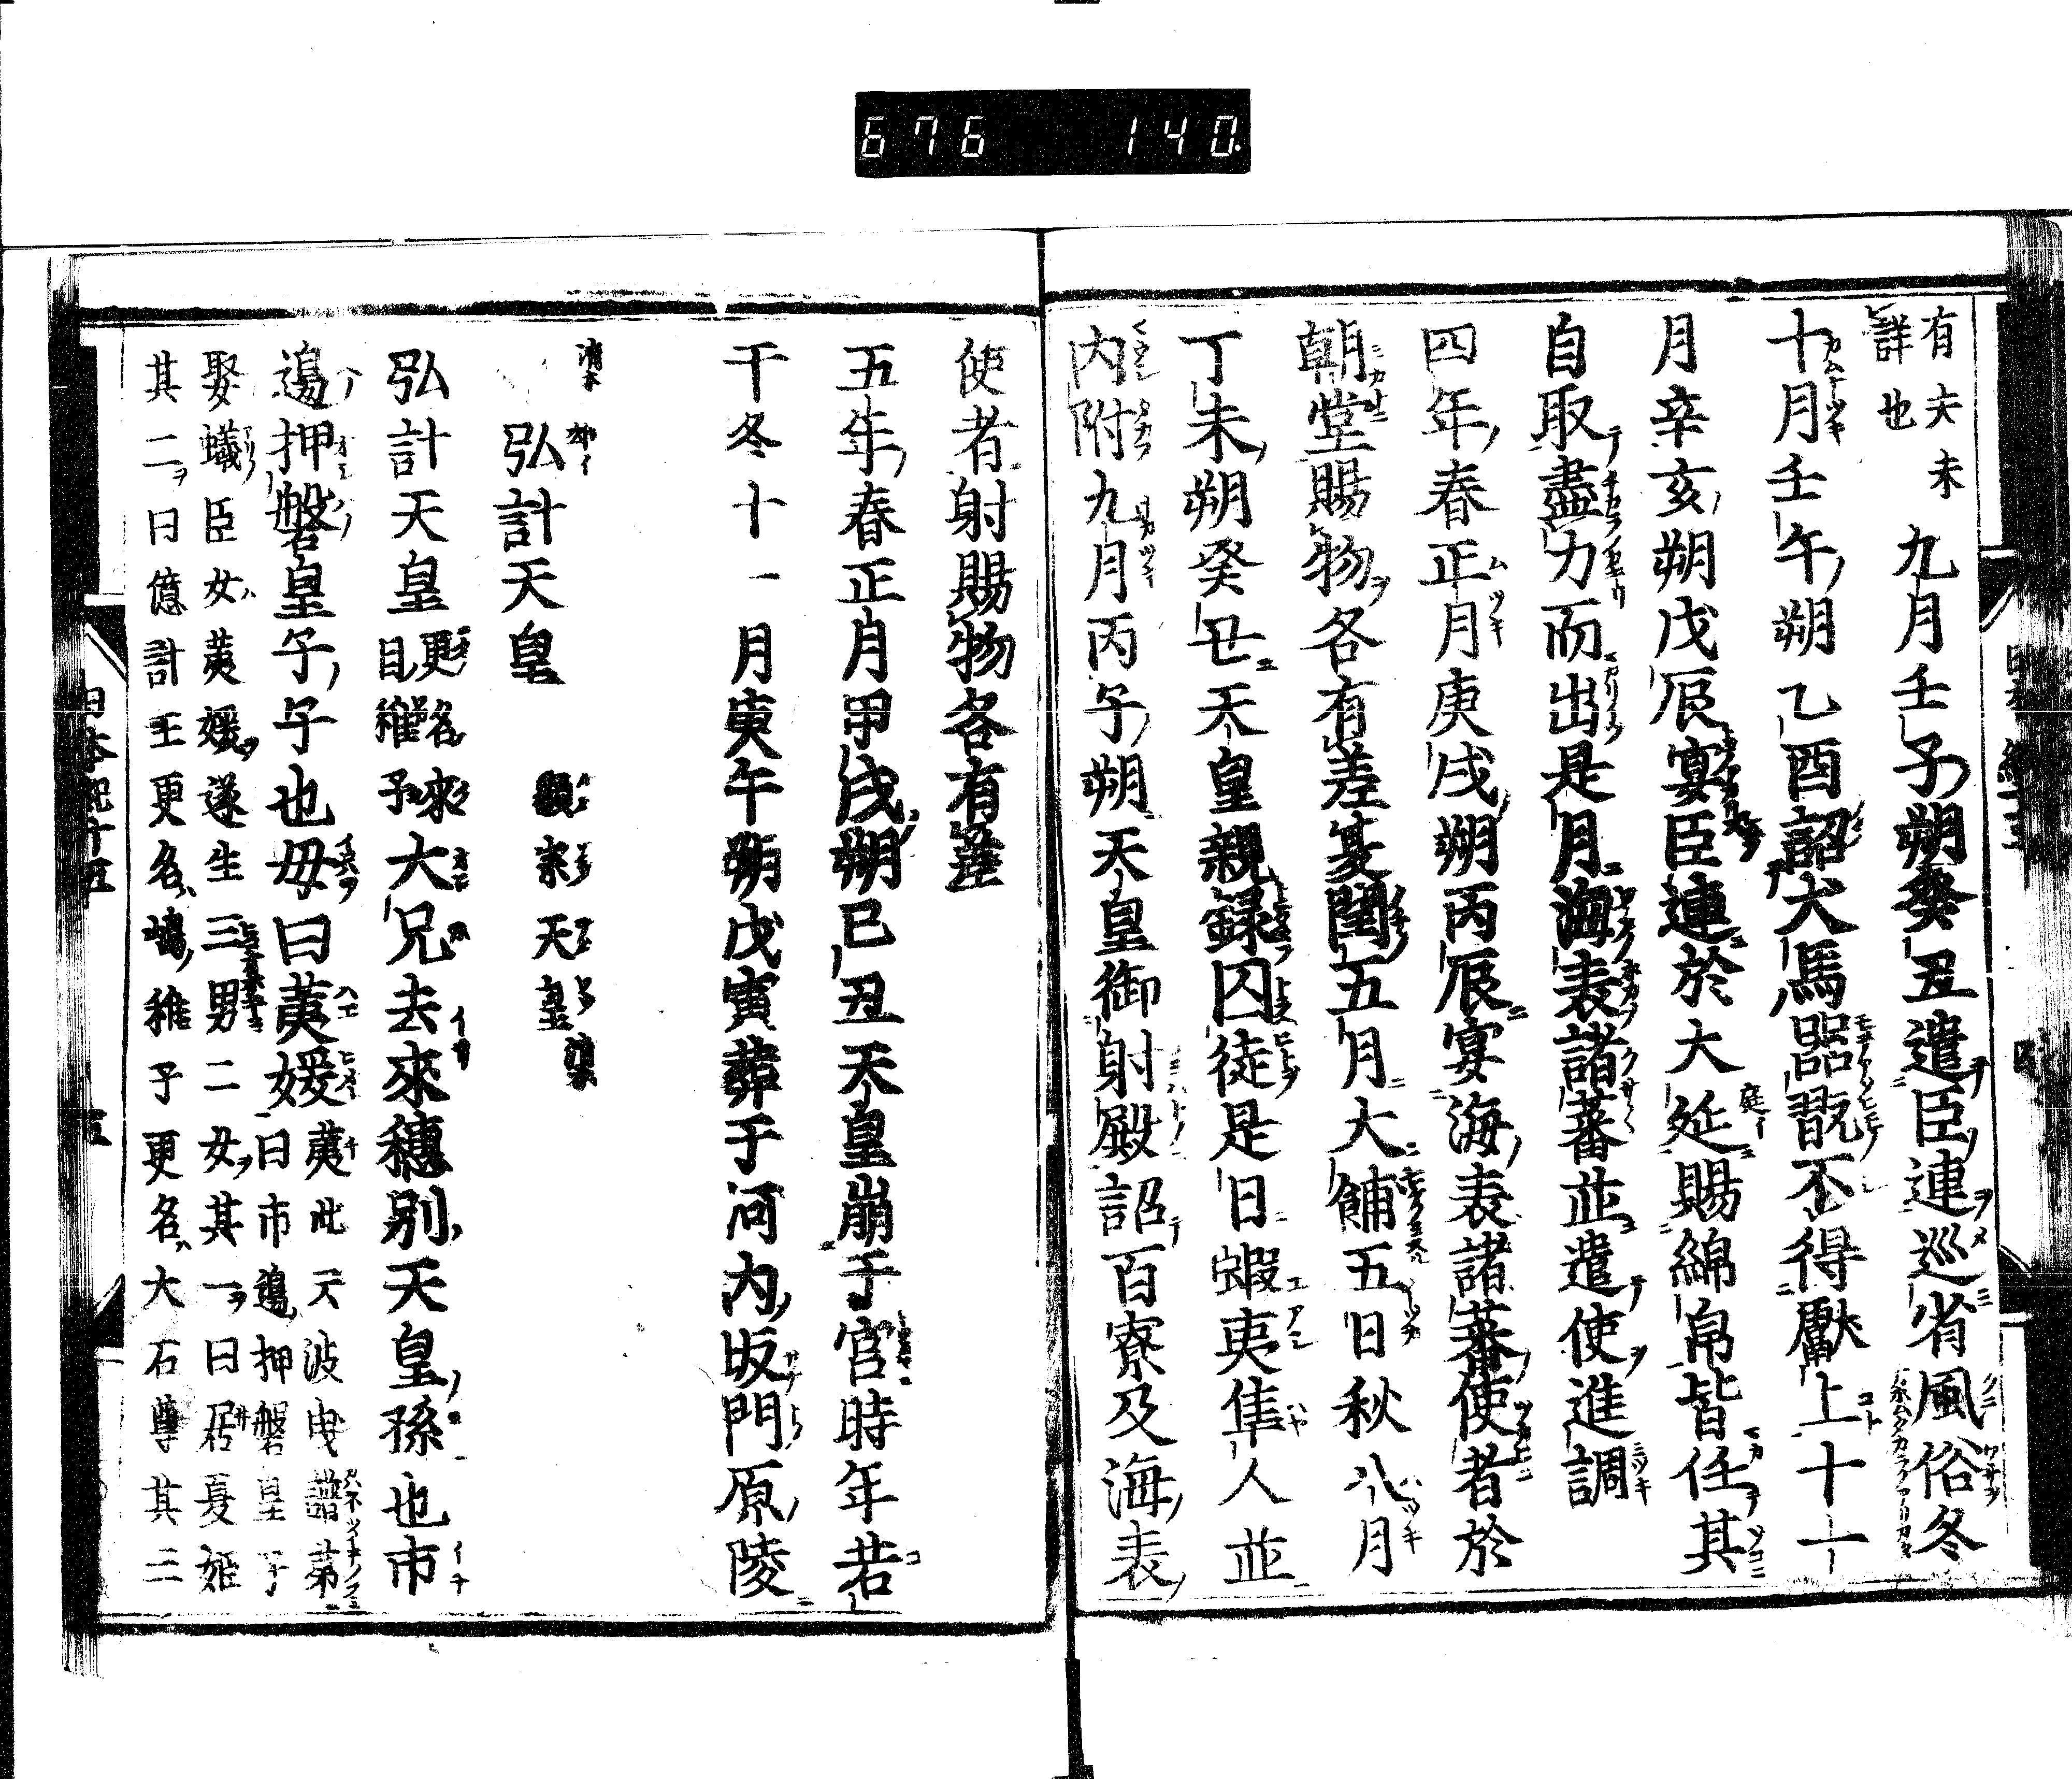 676 140
有夫未
詳也
九月壬子朔癸丑遣臣連巡省風俗冬
十月壬午朔乙酉詔犬馬器翫不得獻上十一
月辛亥朔戊辰宴臣連於大𨒂賜綿帛皆任其
自取盡力而出是月海表諸蕃並遣使進調
四年春正月庚戌朔丙辰宴海表諸蕃使者於
朝堂賜物各有差夏閏五月大餔五日秋八月
丁未朔癸丑天皇親録囚徒是日蝦夷隼人並
内附九月丙子朔天皇御射殿詔百寮及海表
使者射賜物各有差
五年春正月甲戌朔己丑天皇崩于宮時年若
干冬十一月庚午朔戊寅葬于河内坂門原陵
弘計天皇
顯宗天皇
弘計天皇
更名來
目稚子
大兄去來穗別天皇孫也市
邊押磐皇子子也母曰荑媛
荑此云波曳譜苐
曰市邊押磐皇子
娶蟻臣女荑媛遂生三男二女其一曰居夏姫
其二曰億計王更名嶋稚子更名大石尊其三